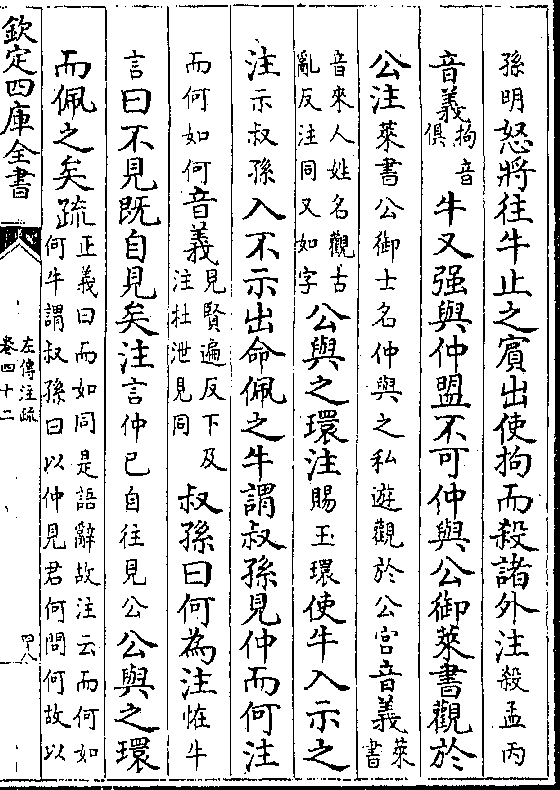 孫明怒將往牛止之賓出使拘而殺諸外注殺孟丙
音義拘音俱牛又强與仲盟不可仲與公御萊書觀於
公注萊書公御士名仲與之私遊觀於公宫音義萊書
音來人姓名觀古亂反注同又如字公與之環注賜玉環使牛入示之
注示叔孫入不示出命佩之牛謂叔孫見仲而何注
而何如何音義見賢遍反下及注杜泄見同叔孫曰何為注恠牛
言曰不見既自見矣注言仲已自往見公公與之環
而佩之矣疏正義曰而如同是語辭故注云而何如何牛謂叔孫曰以仲見君何問何故以
欽定四庫全書
左傳注疏
卷四十二
四八